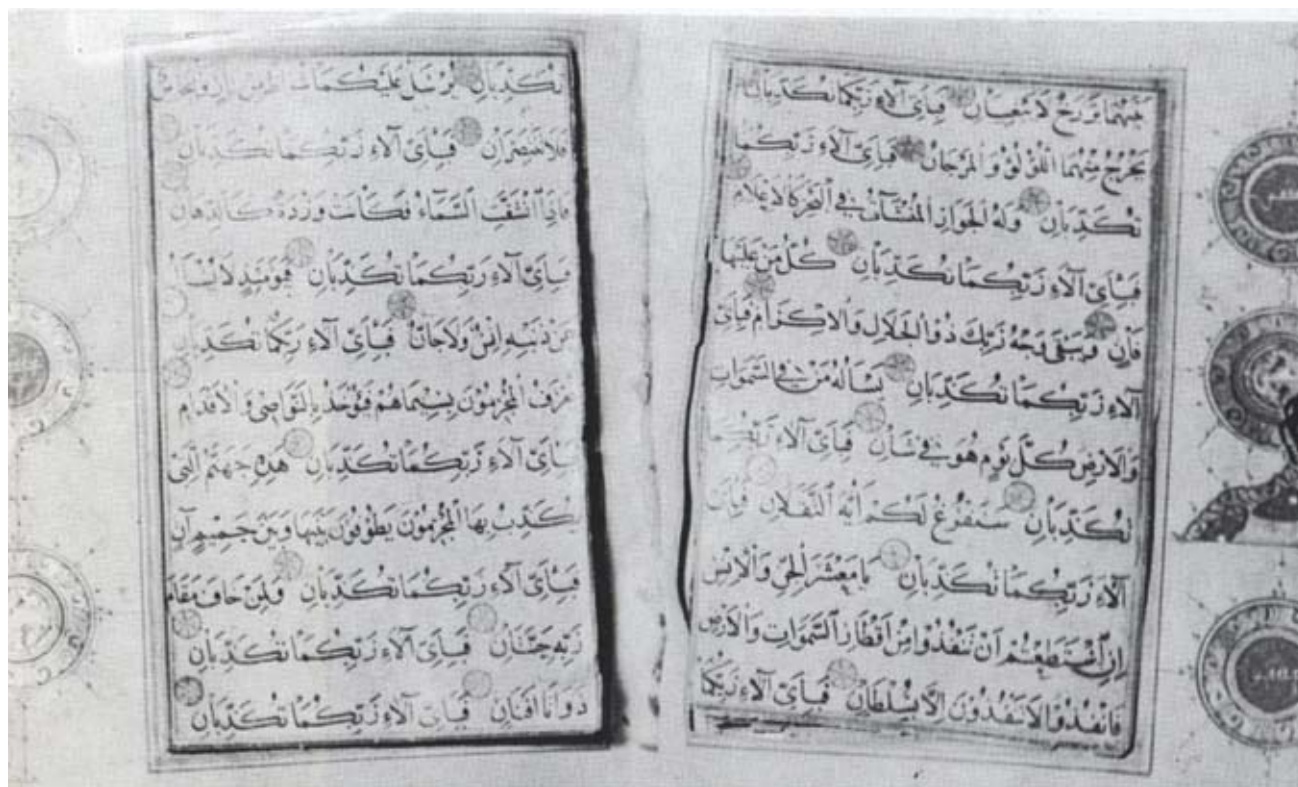 بينهما برزخ لا يبغيان فبأي آلاء ربكما تكذبان
يخرج منهما اللؤلؤ والمرجان فبأي آلاء ربكما
تكذبان وله الجوار المنشآت في البحر كالاعلام
فبأي آلاء ربكما تكذبان كل من عليها
فان ويبقى وجه ربك ذو الجلال والاكرام فبأي
آلاء ربكما تكذبان يسأله من في السموات
والارض كل يوم هو في شأن فبأي آلاء ربكما
تكذبان سنفرغ لكم أيه الثقلان فبأي
آلاء ربكما تكذبان يا معشر الجن والانس
ان استطعتم أن تنفذوا من أقطار السموات والارض
فانفذوا لا تنفذون الا بسلطان فبأي آلاء ربكما
تكذبان يرسل عليكما شواظ من نار ونحاس
فلا تنتصران فبأي آلاء ربكما تكذبان
فاذا انشقت السماء فكانت وردة كالدهان
فبأي آلاء ربكما تكذبان فيومئذ لا يسأل
عن ذنبه انس ولا جان فبأي آلاء ربكما تكذبان
يعرف المجرمون بسيماهم فيؤخذ بالنواصي والاقدام
فبأي آلاء ربكما تكذبان هذه جهنم التي
يكذب بها المجرمون يطوفون بينها وبين حميم آن
فبأي آلاء ربكما تكذبان ولمن خاف مقام
ربه جنتان فبأي آلاء ربكما تكذبان
ذواتا افنان فبأي آلاء ربكما تكذبان